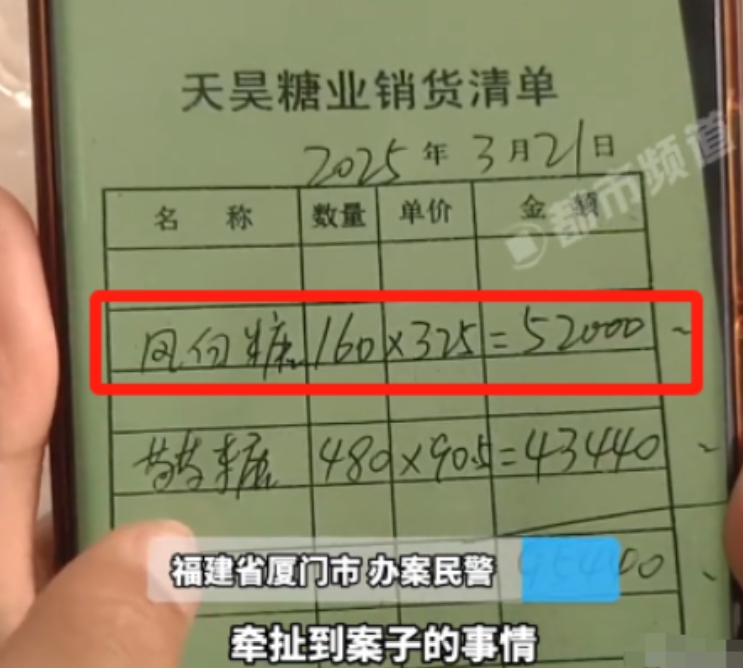 天昊糖业销货清单
2025年3月21日
都市频道
名称 数量 单价 金额
糖 160×325=52000
糖 480×90.5=43440
福建省厦门市 办案民警
牵扯到案子的事情